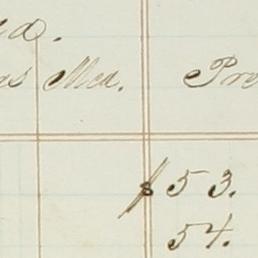 as Med. Pre
$53.
54.